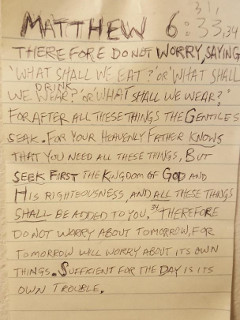 31,
MATTHEW 6:33,34
THEREFORE DO NOT WORRY, SAYING
'WHAT SHALL WE EAT?' OR 'WHAT SHALL
DRINK
WE WEAR?' OR 'WHAT SHALL WE WEAR?'
FOR AFTER ALL THESE THINGS THE GENTILES
SEAK. FOR YOUR HEAVENLY FATHER KNOWS
THAT YOU NEED ALL THESE THINGS, BUT
SEEK FIRST THE KINGDOM OF GOD AND
HIS RIGHTEOUSNESS, AND ALL THESE THINGS
SHALL BE ADDED TO YOU. 34 THEREFORE
DO NOT WORRY ABOUT TOMORROW, FOR
TOMORROW WILL WORRY ABOUT ITS OWN
THINGS. SUFFICIENT FOR THE DAY IS ITS
OWN TROUBLE.